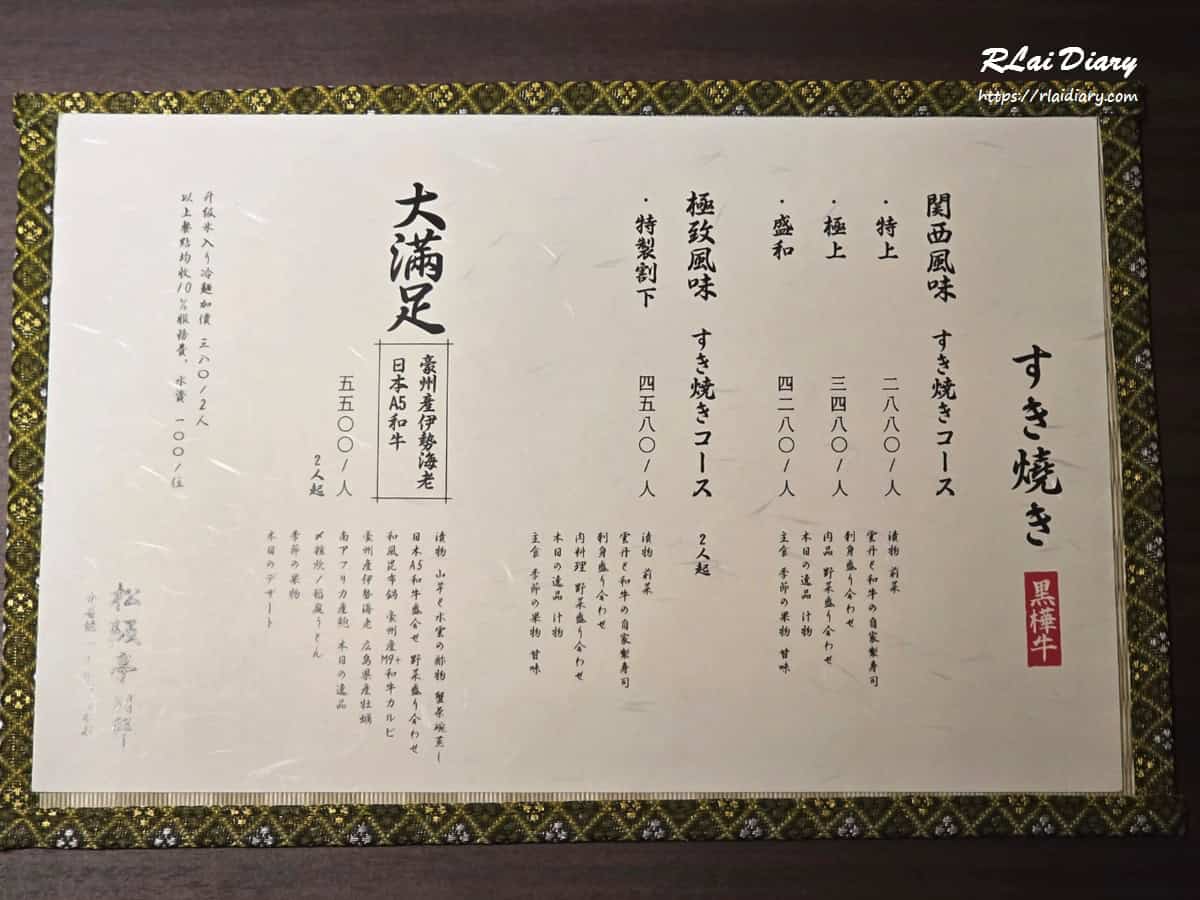 RLai Diary
https://rlaidiary.com
すき燒き 黒樺牛
関西風味 すき焼きコース
・特上 二八八〇/人
・極上 三四八〇/人
・盛和 四二八〇/人
漬物 前菜
雲丹と和牛の自家製寿司
刺身盛り合わせ
肉品 野菜盛り合わせ
本日の逸品 汁物
主食 季節の果物 甘味
極致風味 すき焼きコース 2人起
・特製割下 四五八〇/人
漬物 前菜
雲丹と和牛の自家製寿司
刺身盛り合わせ
肉料理 野菜盛り合わせ
本日の逸品 汁物
主食 季節の果物 甘味
大滿足
豪州産伊勢海老
日本A5和牛
五五〇〇/人
2人起
漬物 山芋と水雲の酢物 蟹茶碗蒸し
日本A5和牛盛合せ 野菜盛り合わせ
和風昆布鍋 豪州産M9+和牛カルビ
豪州産伊勢海老 広島県産牡蠣
南アフリカ産鮑 本日の逸品
〆雑炊/稲庭うどん
季節の果物
本日のデザート
升級氷入り冷麺加價 三八〇/2人
以上餐點均收10%服務費、水資 一〇〇/位